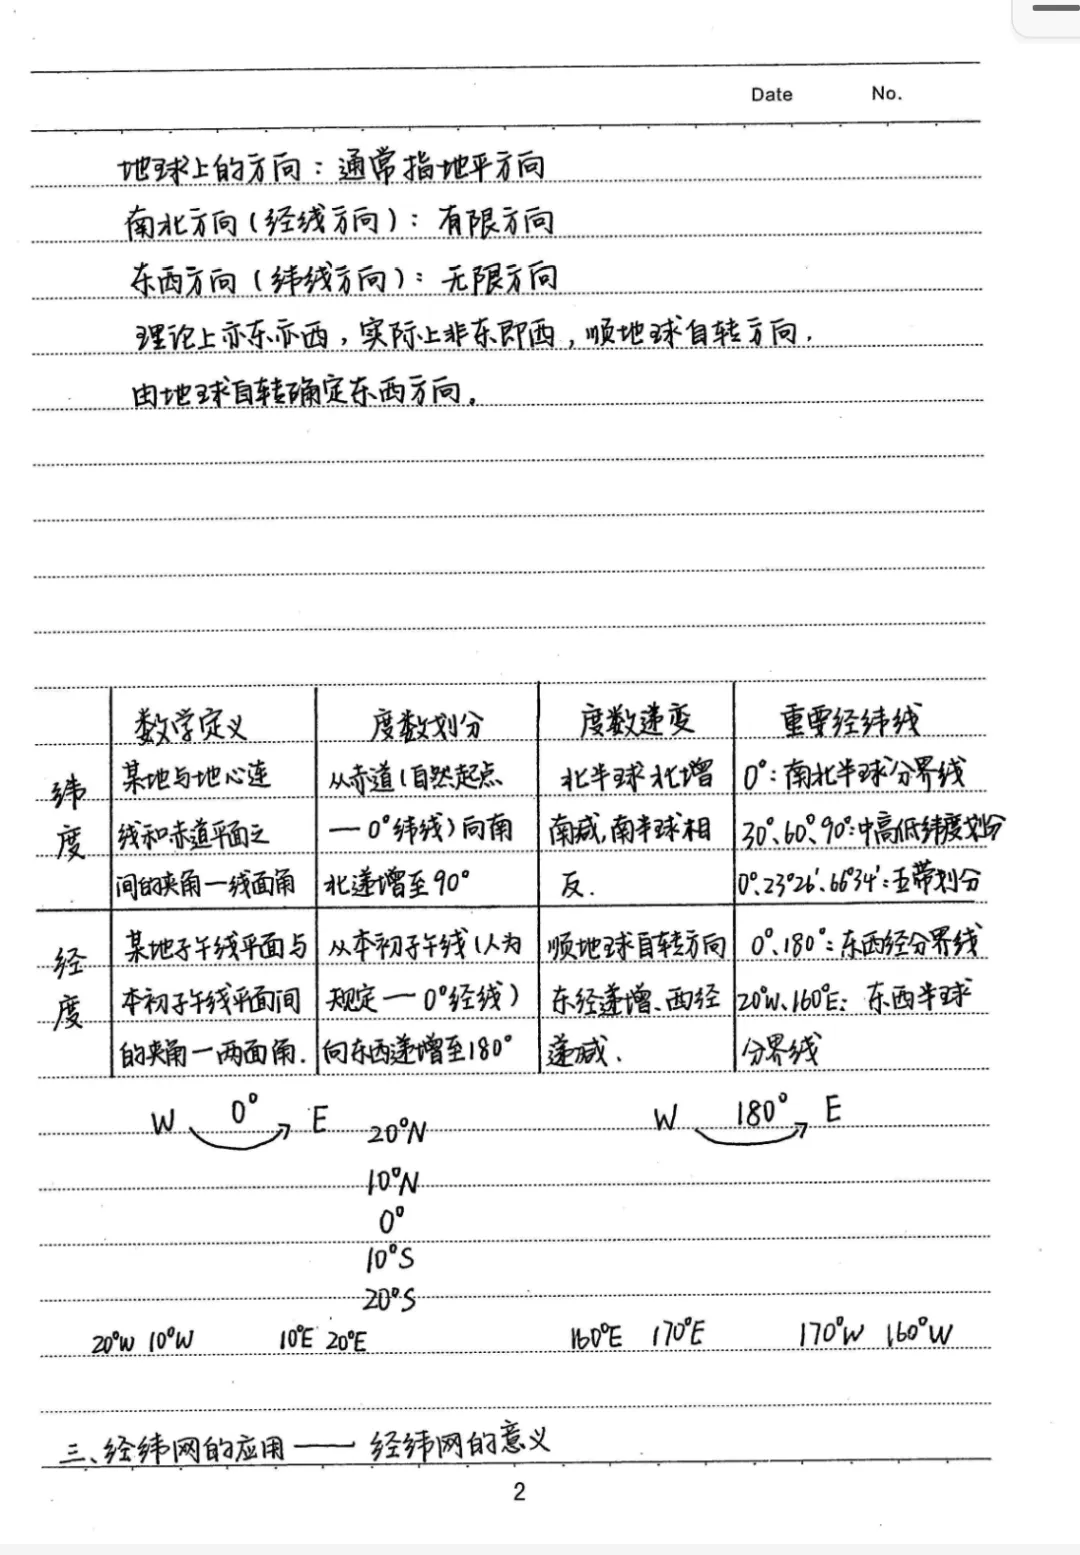 Date No.
地球上的方向：通常指地平方向
南北方向（经线方向）：有限方向
东西方向（纬线方向）：无限方向
理论上亦东亦西，实际上非东即西，顺地球自转方向．
由地球自转确定东西方向。
数学定义 度数划分 度数递变 重要经纬线
纬度
某地与地心连
线和赤道平面之
间的夹角一线面角
从赤道（自然起点
一0°纬线）向南
北递增至90°
北半球北增
南减,南半球相
反．
0°：南北半球分界线
30°、60°、90°：中高低纬度划分
0°、23°26′、66°34′：五带划分
经度
某地子午线平面与
本初子午线平面间
的夹角一两面角．
从本初子午线（人为
规定一0°经线）
向东西递增至180°
顺地球自转方向
东经递增、西经
递减．
0°、180°：东西经分界线
20°W、160°E：东西半球
分界线
W 0° E
W 180° E
20°N
10°N
0°
10°S
20°S
20°W 10°W 10°E 20°E 160°E 170°E 170°W 160°W
三、经纬网的应用——经纬网的意义
2